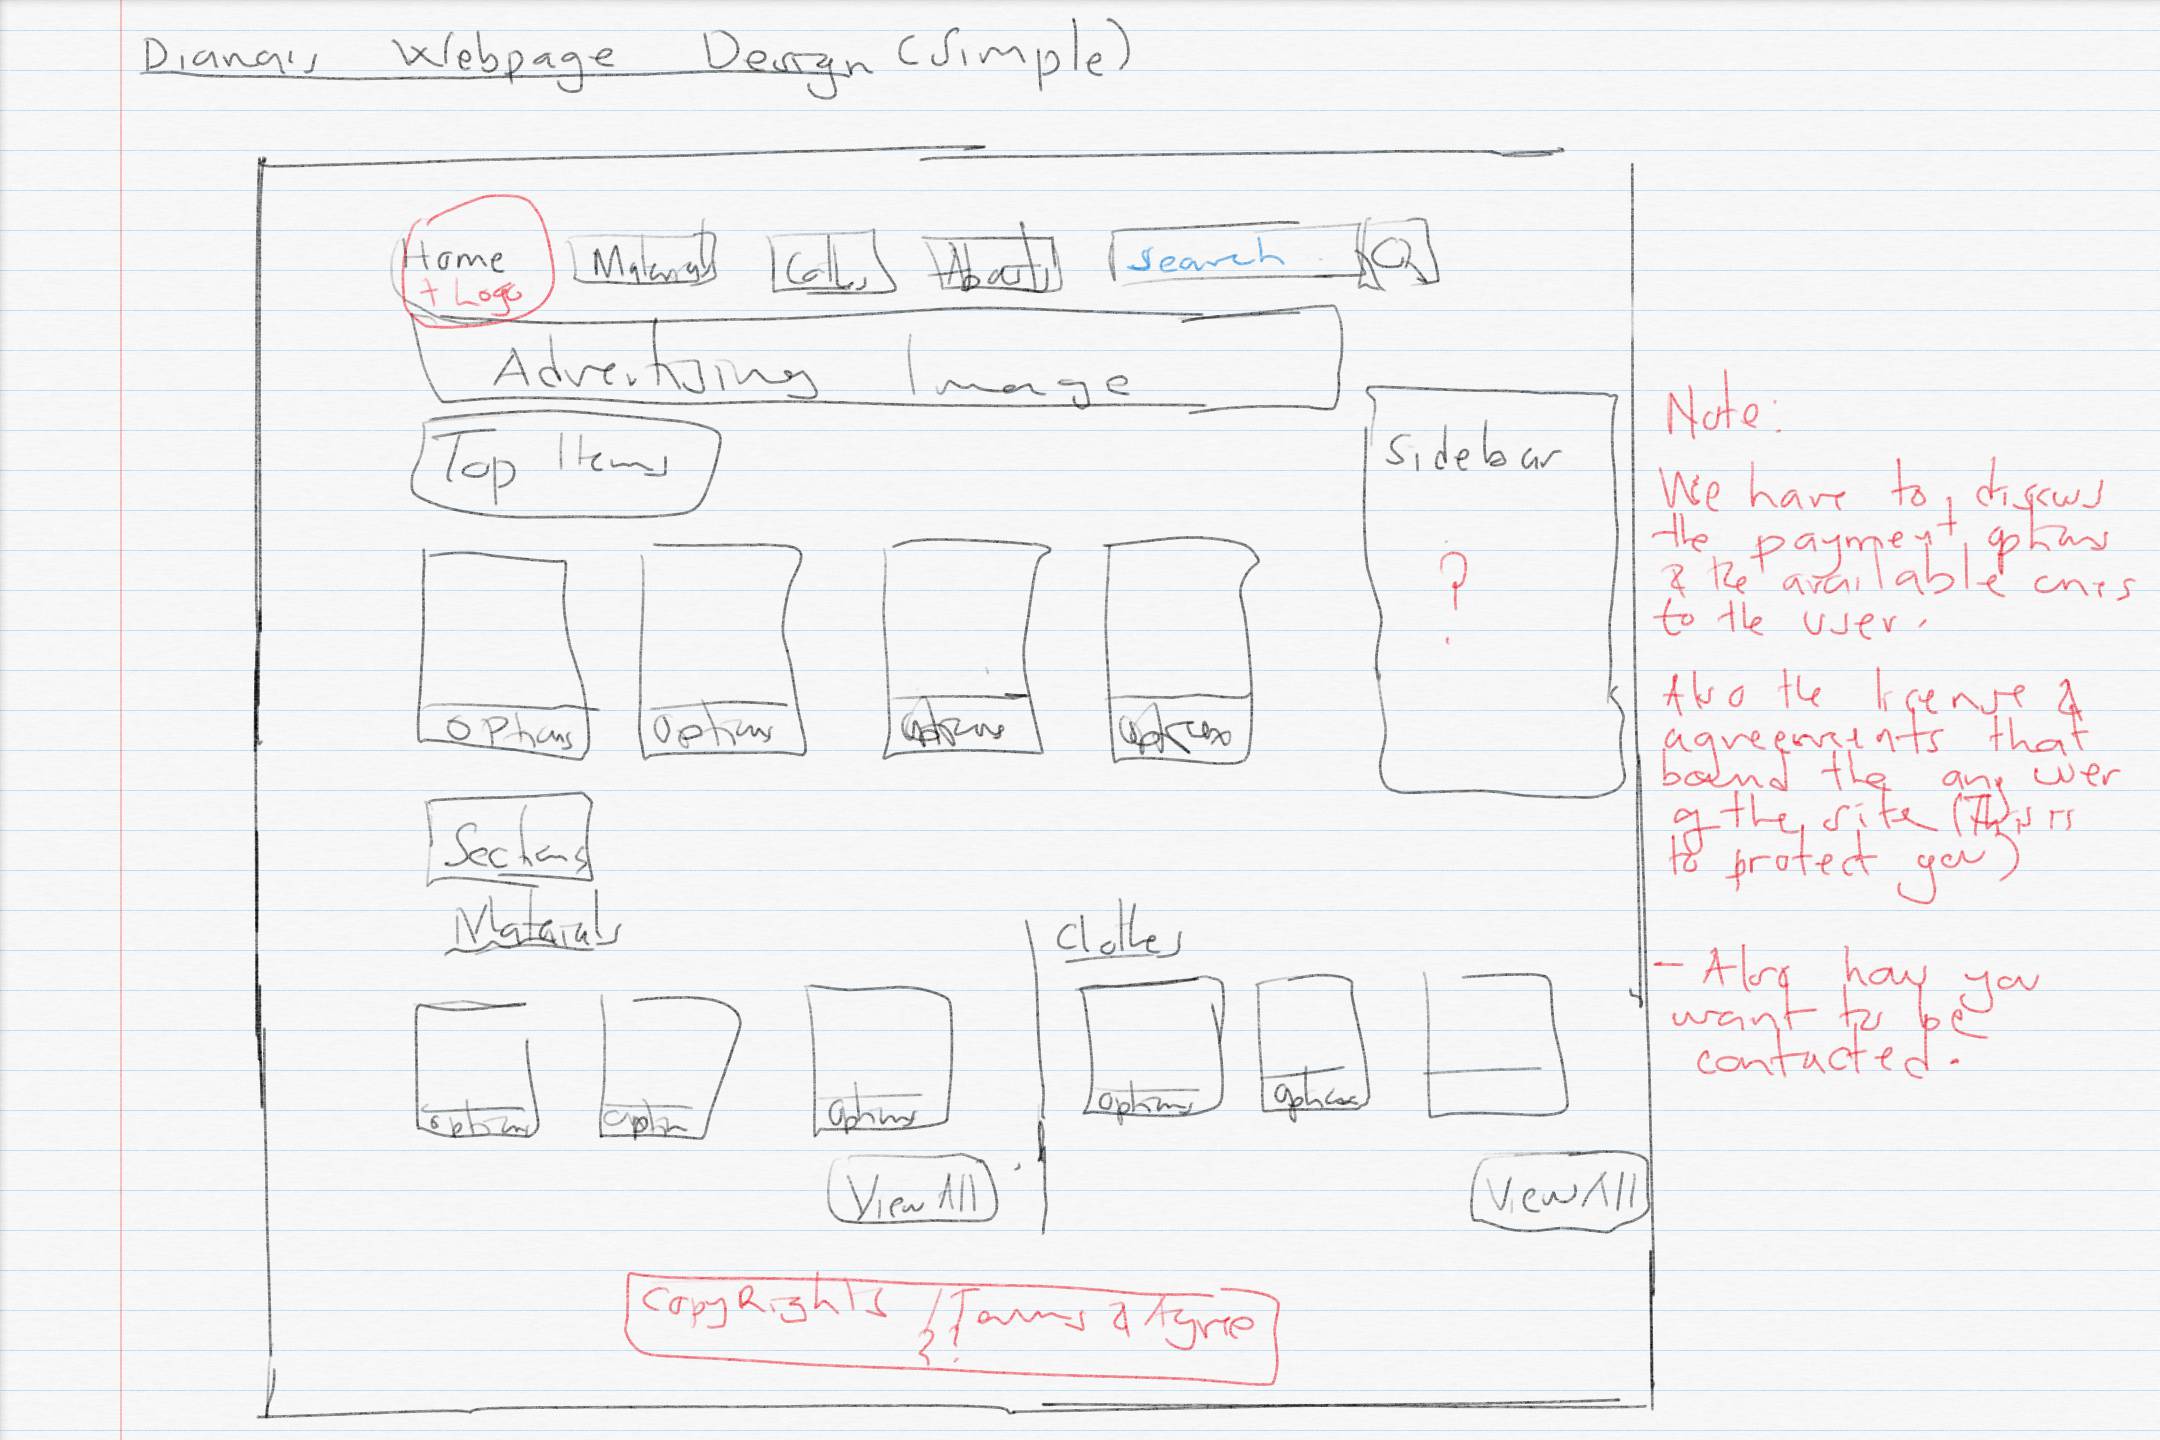 Diana's Webpage Design (Simple)
Home
+ Logo
Materials
About
Search
Advertising Image
Top Items
Sidebar
?
Options
Options
Options
Sections
Materials
Clothes
options
option
options
options
options
View All
View All
CopyRights / Terms & Agree
Note:
We have to discuss
the payment options
& the available ones
to the user.
Also the license &
agreements that
bound the any user
of the site (This is
to protect you)
- Also how you
want to be
contacted.